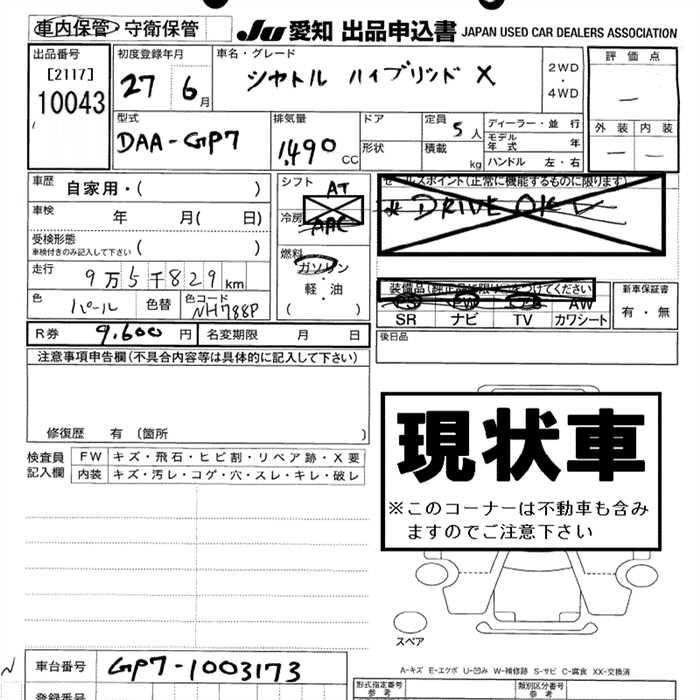 車内保管 守衛保管 JU 愛知 出品申込書 JAPAN USED CAR DEALERS ASSOCIATION
出品番号 初度登録年月 車名・グレード 評価点
[2117] 27 6月 シャトル ハイブリッド X 2WD・4WD —
10043
型式 排気量 ドア 定員 5人 ディーラー・並行 外装 内装
DAA-GP7 1,490 CC 形状 積載 kg モデル年式 年 — —
ハンドル 左・右
車歴 自家用・( ) シフト AT セールスポイント(正常に機能するものに限ります)
車検 年 月( 日) 冷房 AAC ☆ DRIVE OK
受検形態 ( ) 燃料
車検付きのみ記入して下さい
走行 9万5千829km ガソリン・軽・油 ( ) 装備品(純正品に限り○をつけてください) 新車保証書
色 パール 色替 色コード NH788P PS PW エアB AW 有・無
SR ナビ TV カワシート
R券 9,600円 名変期限 月 日 後日品
注意事項申告欄(不具合内容等は具体的に記入して下さい)
修復歴 有 (箇所 )
現状車
※このコーナーは不動車も含み
ますのでご注意下さい
検査員 FW キズ・飛石・ヒビ割・リペア跡・X要
記入欄 内装 キズ・汚レ・コゲ・穴・スレ・キレ・破レ
スペア
車台番号 GP7-1003173 A-キズ E-エクボ U-凹み W-補修跡 S-サビ C-腐食 XX-交換済
登録番号 型式指定番号 参考 類別区分番号 参考